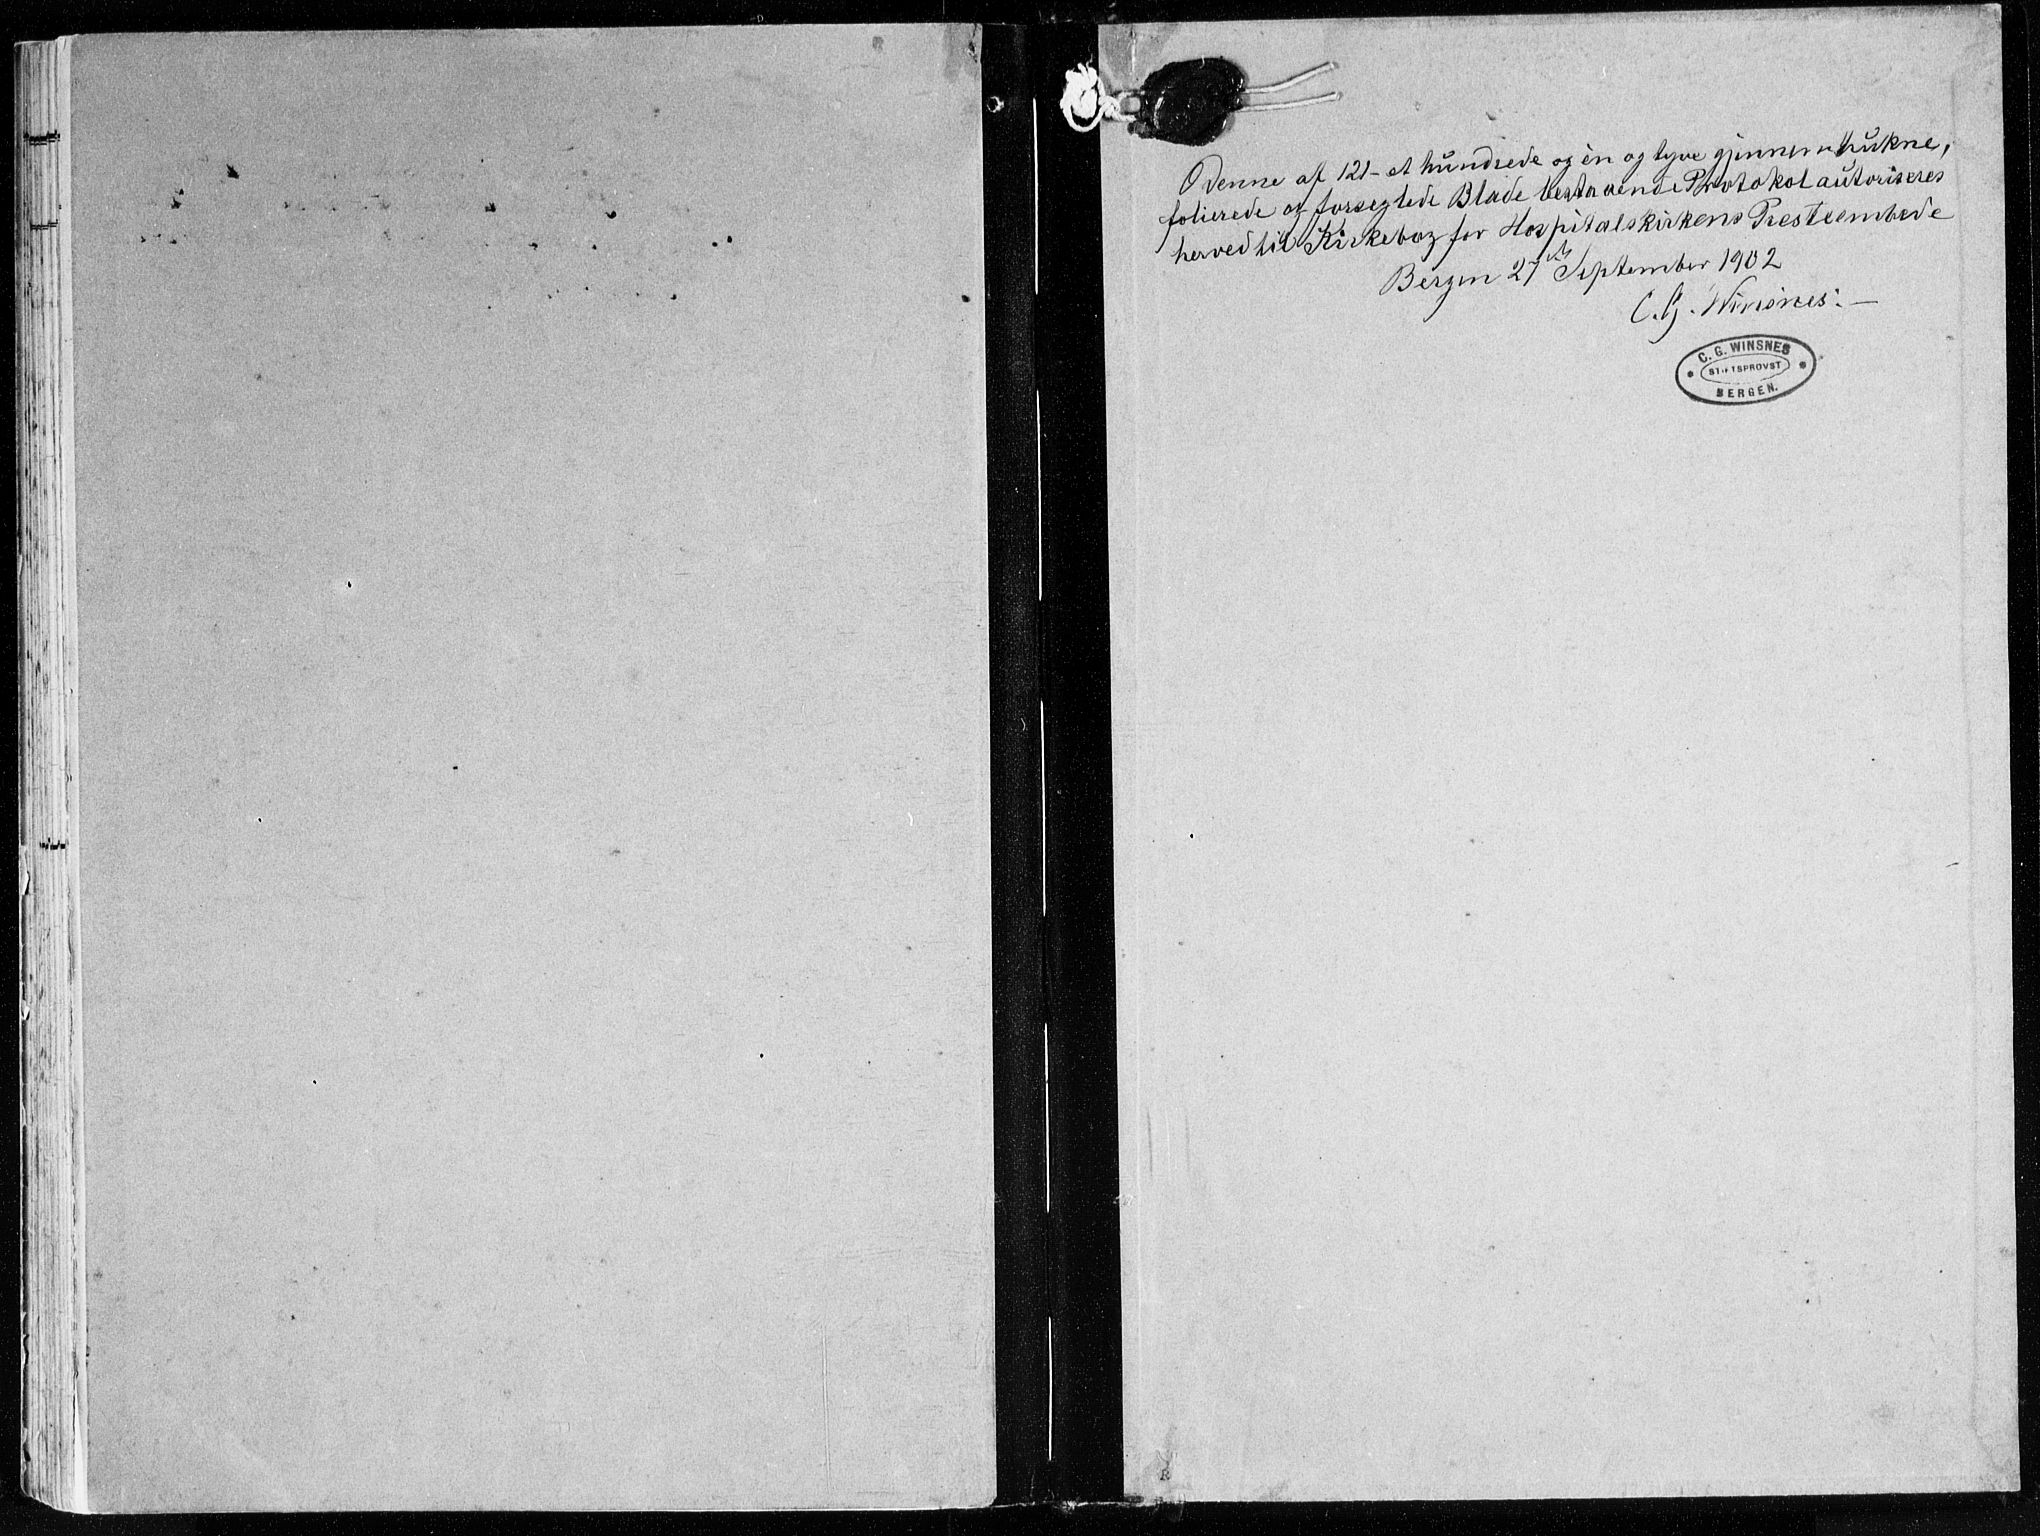 Denne af 121 - et hundrede og én og tyve gjennemtrukne,
folierede og forseglede Blade bestaaende Protokol autoriseres
herved til Kirkebog for Hospitalskirkens Presteembede
Bergen 27de September 1902
C. G. Winsnes: -
C. G. WINSNES
STIFTSPROVST
BERGEN.
R